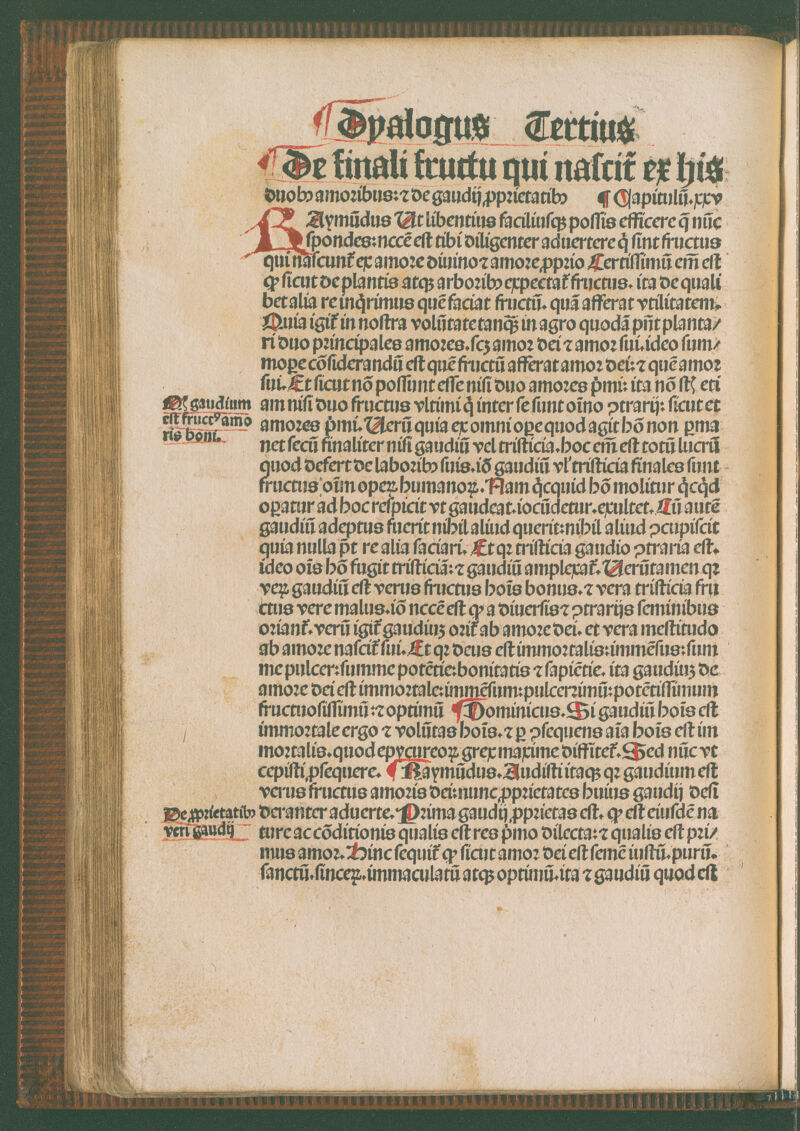 ¶ Dyalogus Tertius
¶ De finali fructu qui nascit᷑ ex his
duobꝫ amoribus: ⁊ de gaudij ꝓprietatibꝫ ¶ Capitulū. xxv
RAymūdus Ut libentius faciliusqꝫ possis efficere q̄ nūc
spondes: nccē est tibi diligenter aduertere q̇ sint fructus
qui nascunt᷑ ex amore diuino ⁊ amore ꝓprio Certissimū em̄ est
ꝙ sicut de plantis atqꝫ arboribꝫ expectat᷑ fructus. ita de quali
bet alia re inq̇rimus quē faciat fructū. quā afferat vtilitatem.
Quia igit᷑ in nostra volūtate tanqꝫ̄ in agro quodā pn̄t planta/
ri duo principales amores. scꝫ amor dei ⁊ amor sui. ideo sum/
mope cōsiderandū est quē fructū afferat amor dei: ⁊ quē amor
sui. Et sicut nō possunt esse nisi duo amores p̄mi: ita nō sꝫ eti
am nisi duo fructus vltimi q̇ inter se sunt oīno ꝯtrarij: sicut et
amores p̄mi. Uerū quia ex omni ope quod agit hō non ꝑma
net secū finaliter nisi gaudiū vel tristicia. hoc em̄ est totū lucrū
quod defert de laboribꝫ suis. iō gaudiū vl᷑ tristicia finales sunt
fructus oīm opeꝝ humanoꝝ. Nam q̇cquid hō molitur q̇cq̇d
oꝑatur ad hoc respicit vt gaudeat. iocūdetur. exultet. Cū autē
gaudiū adeptus fuerit nihil aliud querit: nihil aliud ꝯcupiscit
quia nulla p̄t re alia saciari. Et qꝛ tristicia gaudio ꝯtraria est.
ideo oīs hō fugit tristiciā: ⁊ gaudiū amplexat᷑. Uerūtamen qꝛ
veꝝ gaudiū est verus fructus hoīs bonus. ⁊ vera tristicia fru
ctus vere malus. iō nccē est ꝙ a diuersis ⁊ ꝯtrarijs seminibus
oriant᷑. verū igit᷑ gaudiuꝫ orit᷑ ab amore dei. et vera mestitudo
ab amore nascit᷑ sui. Et qꝛ deus est immortalis: immēsus: sum
me pulcer: summe potētie: bonitatis ⁊ sapiētie. ita gaudiuꝫ de
amore dei est immortale: immēsum: pulcerrimū: potētissimum
fructuosissimū: ⁊ optimū ¶ Dominicus. Si gaudiū hoīs est
immortale ergo ⁊ volūtas hoīs. ⁊ ꝑ ꝯsequens aīa hoīs est im
mortalis. quod epycureoꝝ grex maxime diffitet᷑. Sed nūc vt
cepisti ꝓsequere. ¶ Raymūdus. Audisti itaqꝫ qꝛ gaudium est
verus fructus amoris dei: nunc ꝓprietates huius gaudij desi
deranter aduerte. Prima gaudij ꝓprietas est. ꝙ est eiusdē na
ture ac cōditionis qualis est res p̄mo dilecta: ⁊ qualis est pri/
mus amor. Hinc sequit᷑ ꝙ sicut amor dei est semē iustū. purū.
sanctū. sinceꝝ. immaculatū atqꝫ optimū. ita ⁊ gaudiū quod est
gaudium
est fructꝰ amo
ris boni.
De ꝓprietatibꝫ
veri gaudij